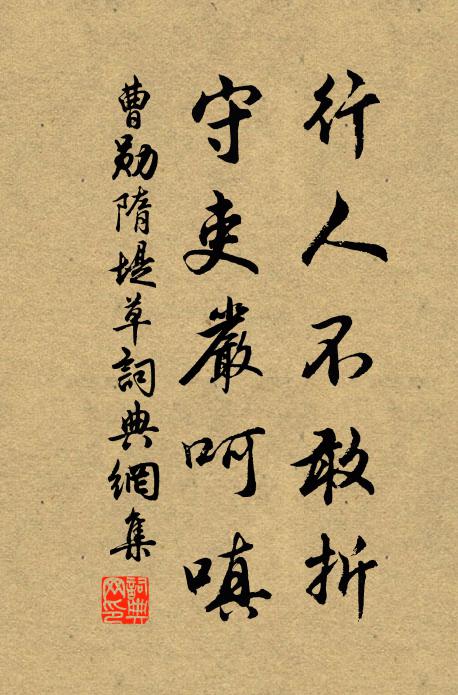 行人不敢折
守吏嚴呵嗔
曹勛隋堤草詞典網集
詞典网印